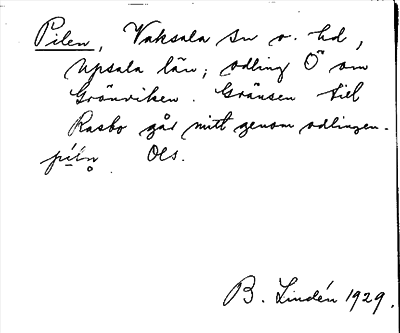 Pilen, Vaksala sn o. hd,
Upsala län; odling Ö om
Gränviken. Gränsen till
Rasbo går mitt genom odlingen.
pi̇́l̥n Obs.
B. Lindén 1929.